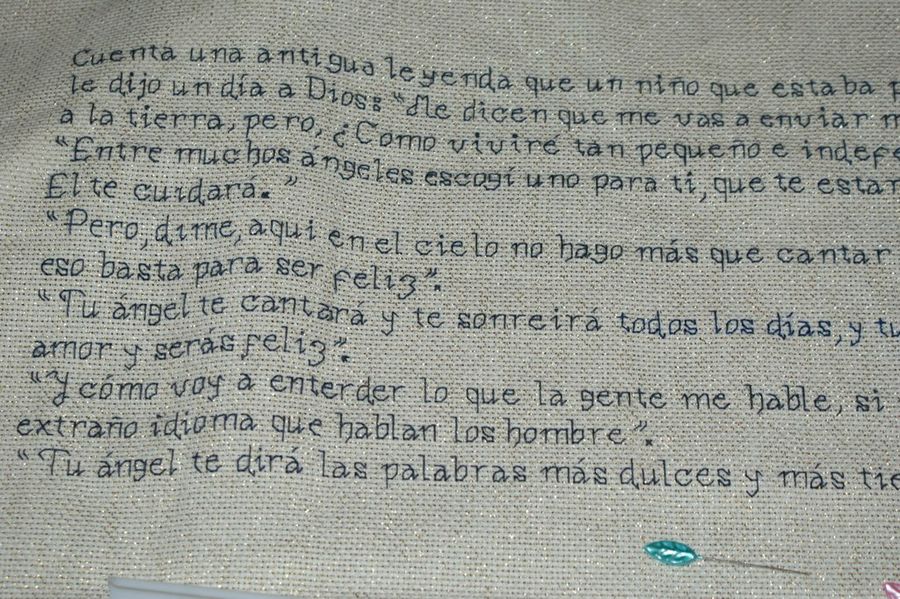 Cuenta una antigua leyenda que un niño que estaba
le dijo un día a Dios: "Me dicen que me vas a enviar
a la tierra, pero, ¿Como viviré tan pequeño e indefe
"Entre muchos ángeles escogí uno para ti, que te estar
El te cuidará."
"Pero, dime, aqui en el cielo no hago más que cantar
eso basta para ser feliz".
"Tu ángel te cantará y te sonreirá todos los días, y tu
amor y serás feliz".
"Y cómo voy a enterder lo que la gente me hable, si
extraño idioma que hablan los hombre".
"Tu ángel te dirá las palabras más dulces y más tie